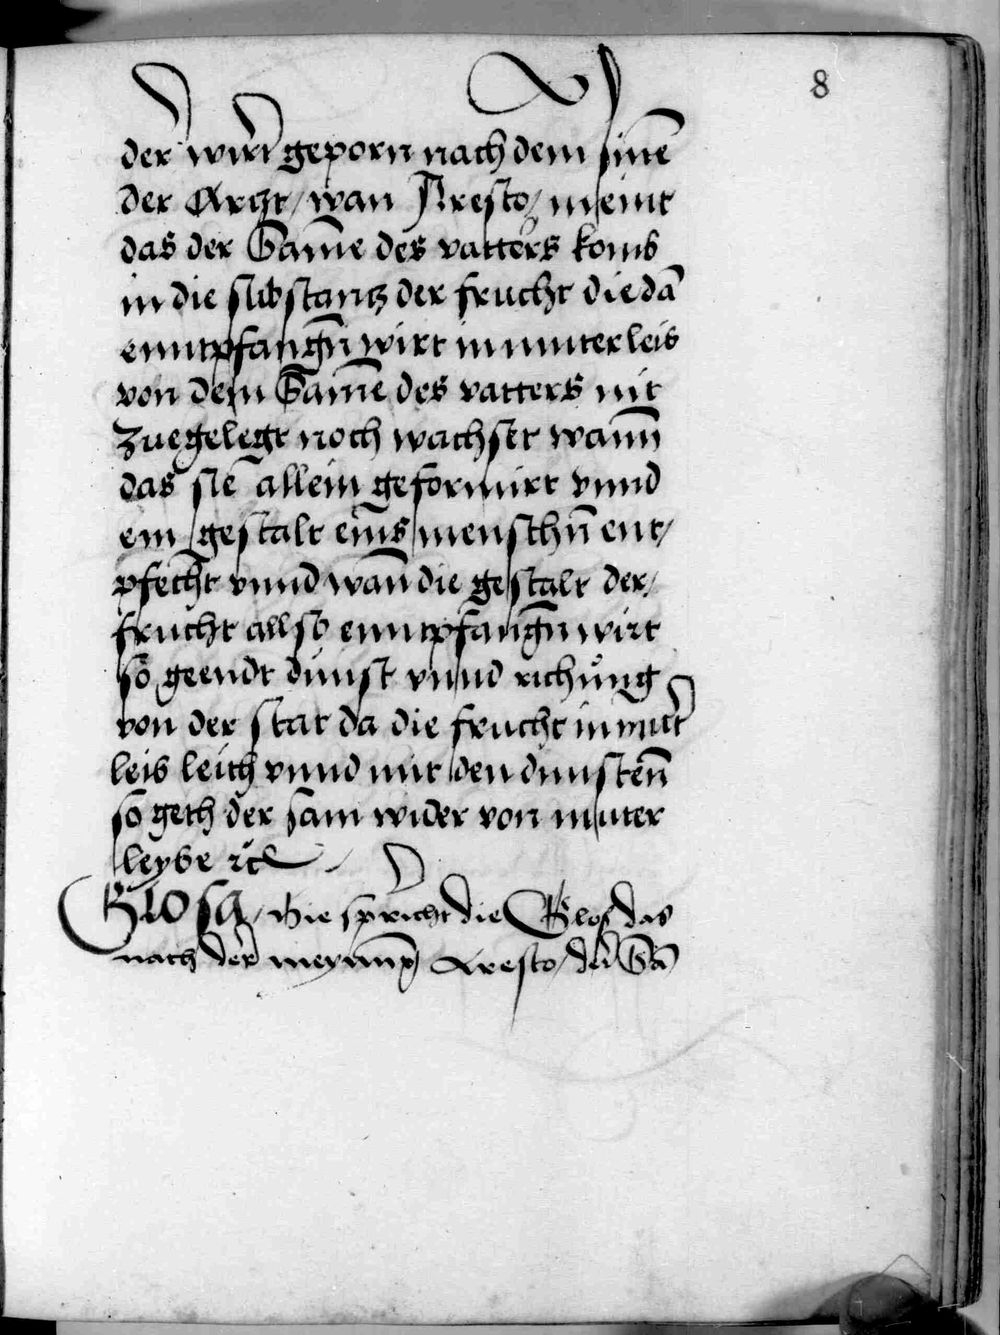 8
der wirt geporn nach dem sinē
der Artzt / wan Aresto / meint
das der Samē des vatters komb
in die substantz der frucht die dā
enntpfangn̄ wirt in muterleib
von dem Samē des vatters nit
zuegelegt noch wachset wann̄
das sie allein geformirt vnnd
ein gestalt eins menschn̄ ent /
pfecht vnnd wan̄ die gestalt der /
frucht allso enntpfangn̄ wirt
so geendt dunst vnnd richůng
von der stat da die frucht in mutr̄
leib leith vnnd mit den dunstenn̄
so geth der sam wider von muter
leybe ꝛc
Glosa / Hie spricht die Glos das
nach der meynung Aresto / der Sā